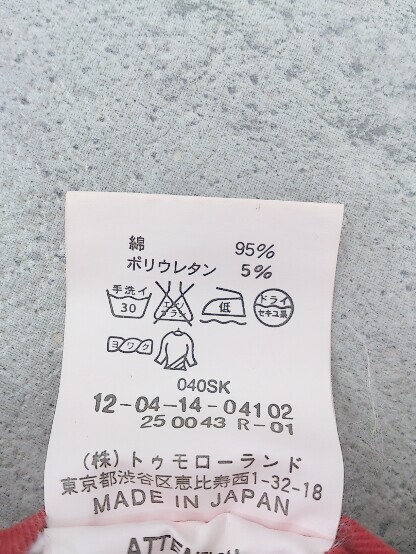 綿 95%
ポリウレタン 5%
手洗イ
30
エンソ
サラシ
低
ドライ
セキユ系
ヨワク
040SK
12-04-14-04102
250043 R-01
(株)トゥモローランド
東京都渋谷区恵比寿西1-32-18
MADE IN JAPAN